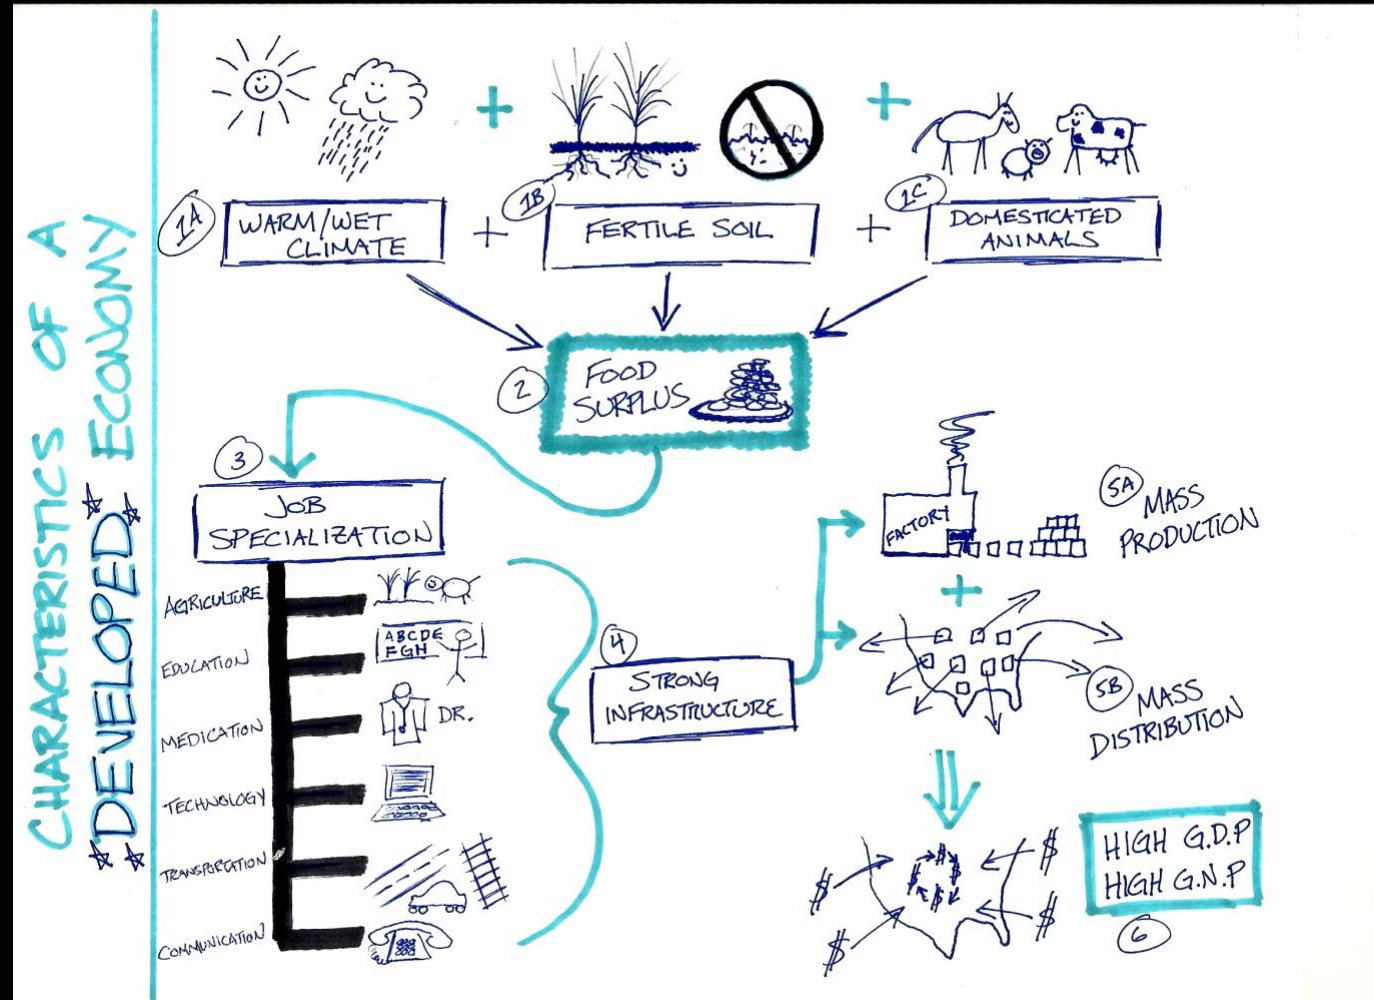 CHARACTERISTICS OF A
*DEVELOPED* ECONOMY
+
+
1A
WARM/WET
CLIMATE
+
1B
FERTILE SOIL
+
1C
DOMESTICATED
ANIMALS
2
FOOD
SURPLUS
3
JOB
SPECIALIZATION
AGRICULTURE
EDUCATION
ABCDE
FGH
MEDICATION
DR.
TECHNOLOGY
TRANSPORTATION
COMMUNICATION
4
STRONG
INFRASTRUCTURE
FACTORY
5A
MASS
PRODUCTION
+
5B
MASS
DISTRIBUTION
$ $ $ $
$ $ $ $
HIGH G.D.P
HIGH G.N.P
6